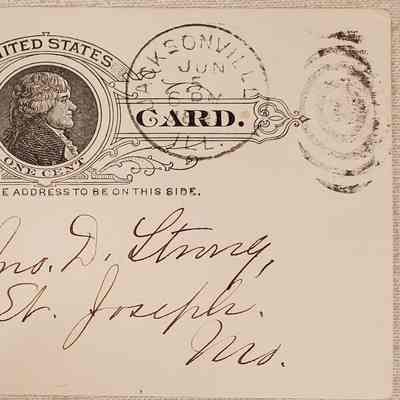 UNITED STATES
JACKSONVILLE
JUN
6 PM
ILL.
CARD.
ONE CENT
E ADDRESS TO BE ON THIS SIDE.
Jno. D. Strong,
St. Joseph.
Mo.